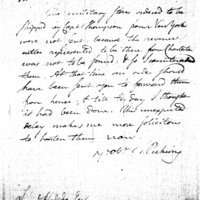 The military stores ordered to be
shipped in Capt Thompson from New York
were not sent because the revenue
cutter represented to be there from Charleston
was not to be found, & to
them. At that time an order should
have been sent you to forward them
from hence; & till to day I thought
it had been done. This unexpected
delay makes me more solicitous
to hasten them now.
Pickering